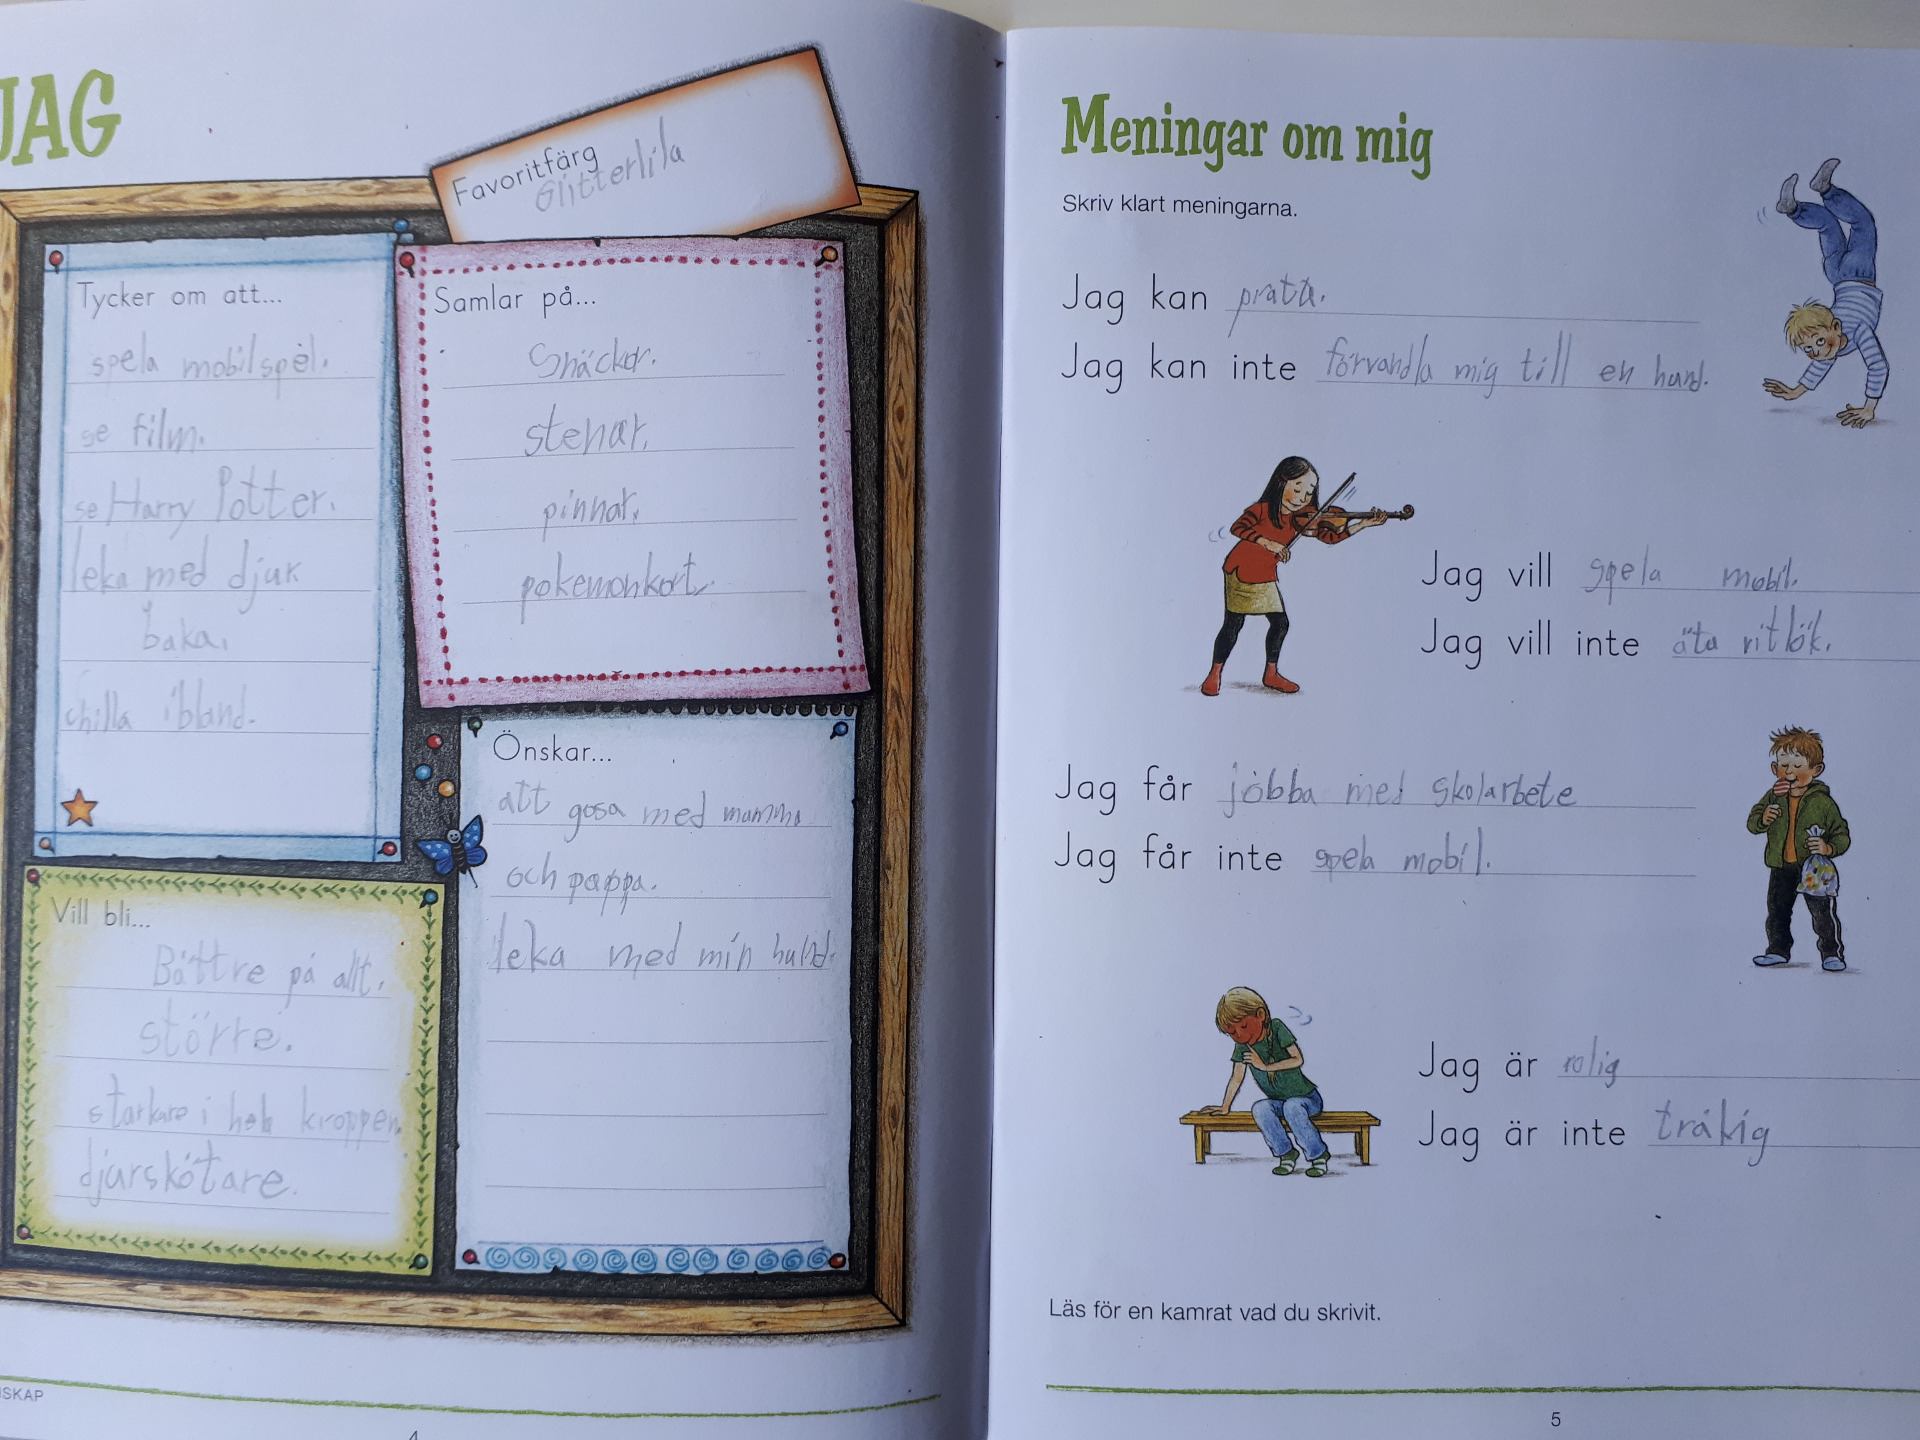 JAG
Favoritfärg
Glitterlila
Tycker om att...
spela mobilspel.
se film.
se Harry Potter.
leka med djur
baka.
chilla ibland.
Samlar på...
Snäckor.
stenar.
pinnar.
pokemonkort.
Vill bli...
Bättre på allt.
större.
starkare i hela kroppen.
djurskötare.
Önskar...
att gosa med mamma
och pappa.
leka med min hund.
SKAP
4
Meningar om mig
Skriv klart meningarna.
Jag kan prata.
Jag kan inte förvandla mig till en hund.
Jag vill spela mobil.
Jag vill inte äta vitlök.
Jag får jobba med skolarbete
Jag får inte spela mobil.
Jag är rolig
Jag är inte tråkig
Läs för en kamrat vad du skrivit.
5